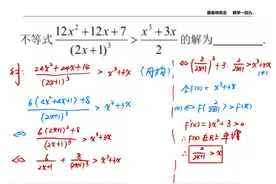 跟着明哥走 数学一百九
不等式 (12x²+12x+7)/(2x+1)³ > (x³+3x)/2 的解为______.
解: (24x²+24x+14)/(2x+1)³ > x³+3x (同构)
(6(4x²+4x+1)+8)/(2x+1)³ > x³+3x
⇔ (6(2x+1)²+8)/(2x+1)³ > x³+3x
⇔ 6/(2x+1) + 8/(2x+1)³ > x³+3x
⇔ (2/(2x+1))³+3·2/(2x+1) > x³+3x
令f(x)=x³+3x
⇔ f(2/(2x+1)) > f(x)
f'(x)=3x²+3>0
∴ f(x)在R上单增
∴ 2/(2x+1) > x